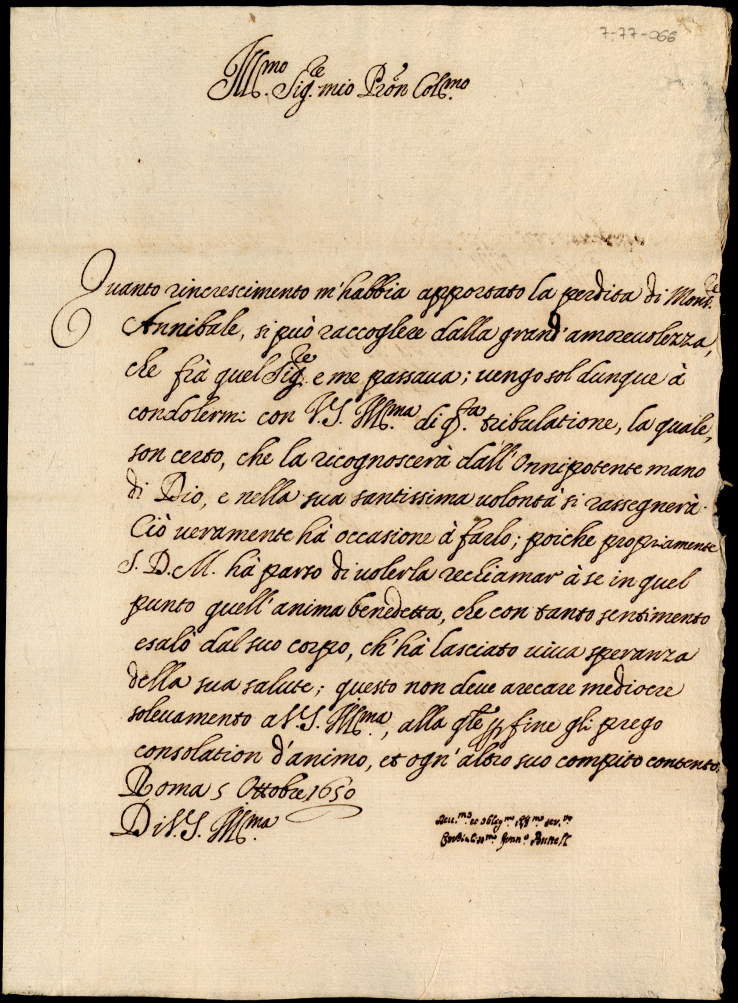 7-77-066
Ill.mo Sig.re mio Pron Col.mo
Quanto rincrescimento m'habbia apportato la perdita di Mons.re
Annibale, si può raccogliere dalla grand'amorevolezza,
che frà quel Sig.re e me passava; vengo sol dunque à
condolermi con V.S. Ill.ma di q.sta tribulatione, la quale,
son certo, che la ricognoscerà dall'Onnipotente mano
di Dio, e nella sua santissima volontà si rassegnerà.
Ciò veramente hà occasione à farlo; poiche propriamente
S. D. M. hà parso di volerla rechiamar à se in quel
punto quell'anima benedetta, che con tanto sentimento
esalò dal suo corpo, ch'hà lasciato viva speranza
della sua salute; questo non deve arecare mediocre
solevamento a V.S. Ill.ma, alla q.le p fine gli prego
consolation d'animo, et ogn'altro suo compito contento.
Roma 5 Ottobre 1650
Di V.S. Ill.ma
et oblig.mo ser.re